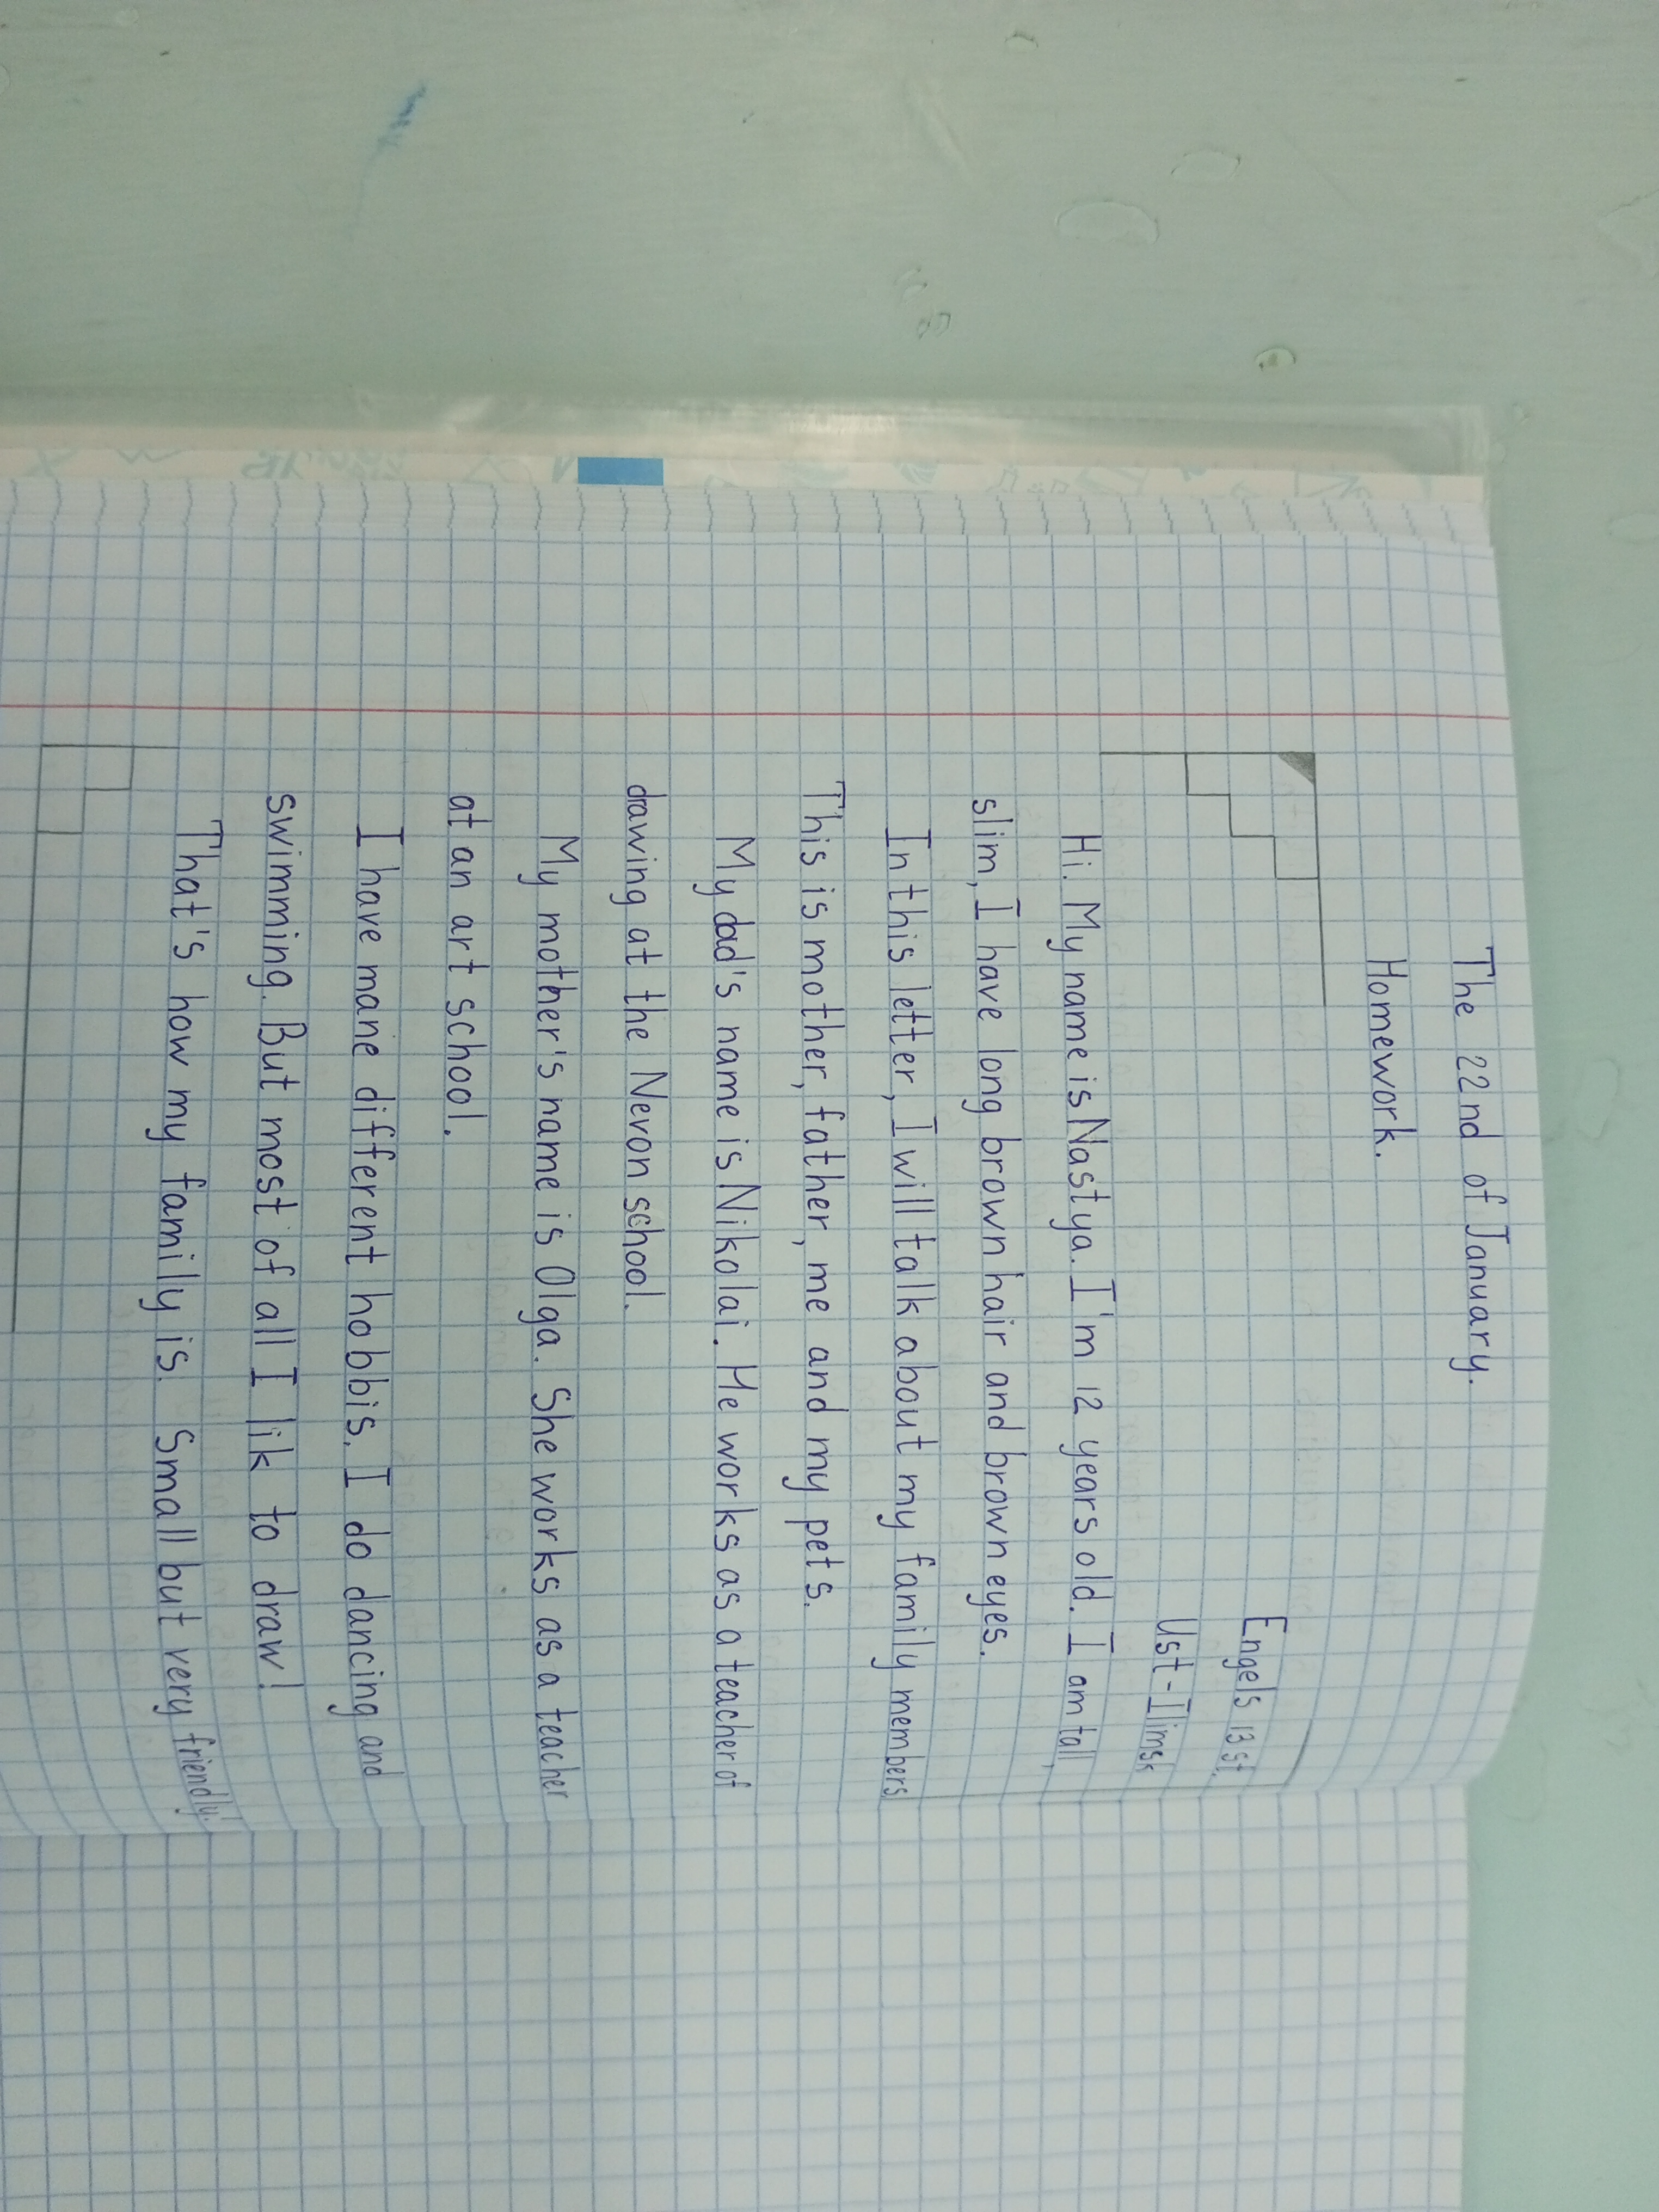 The 22nd of January.
Homework.
Engels 13 st.
Ust-Ilimsk
Hi. My name is Nastya. I'm 12 years old. I am tall,
slim, I have long brown hair and brown eyes.
In this letter, I will talk about my family members.
This is mother, father, me and my pets.
My dad's name is Nikolai. He works as a teacher of
drawing at the Nevon school.
My mother's name is Olga. She works as a teacher
at an art school.
I have manie different hobbis. I do dancing and
swimming. But most of all I lik to draw!
That's how my familly is. Small but very friendly!